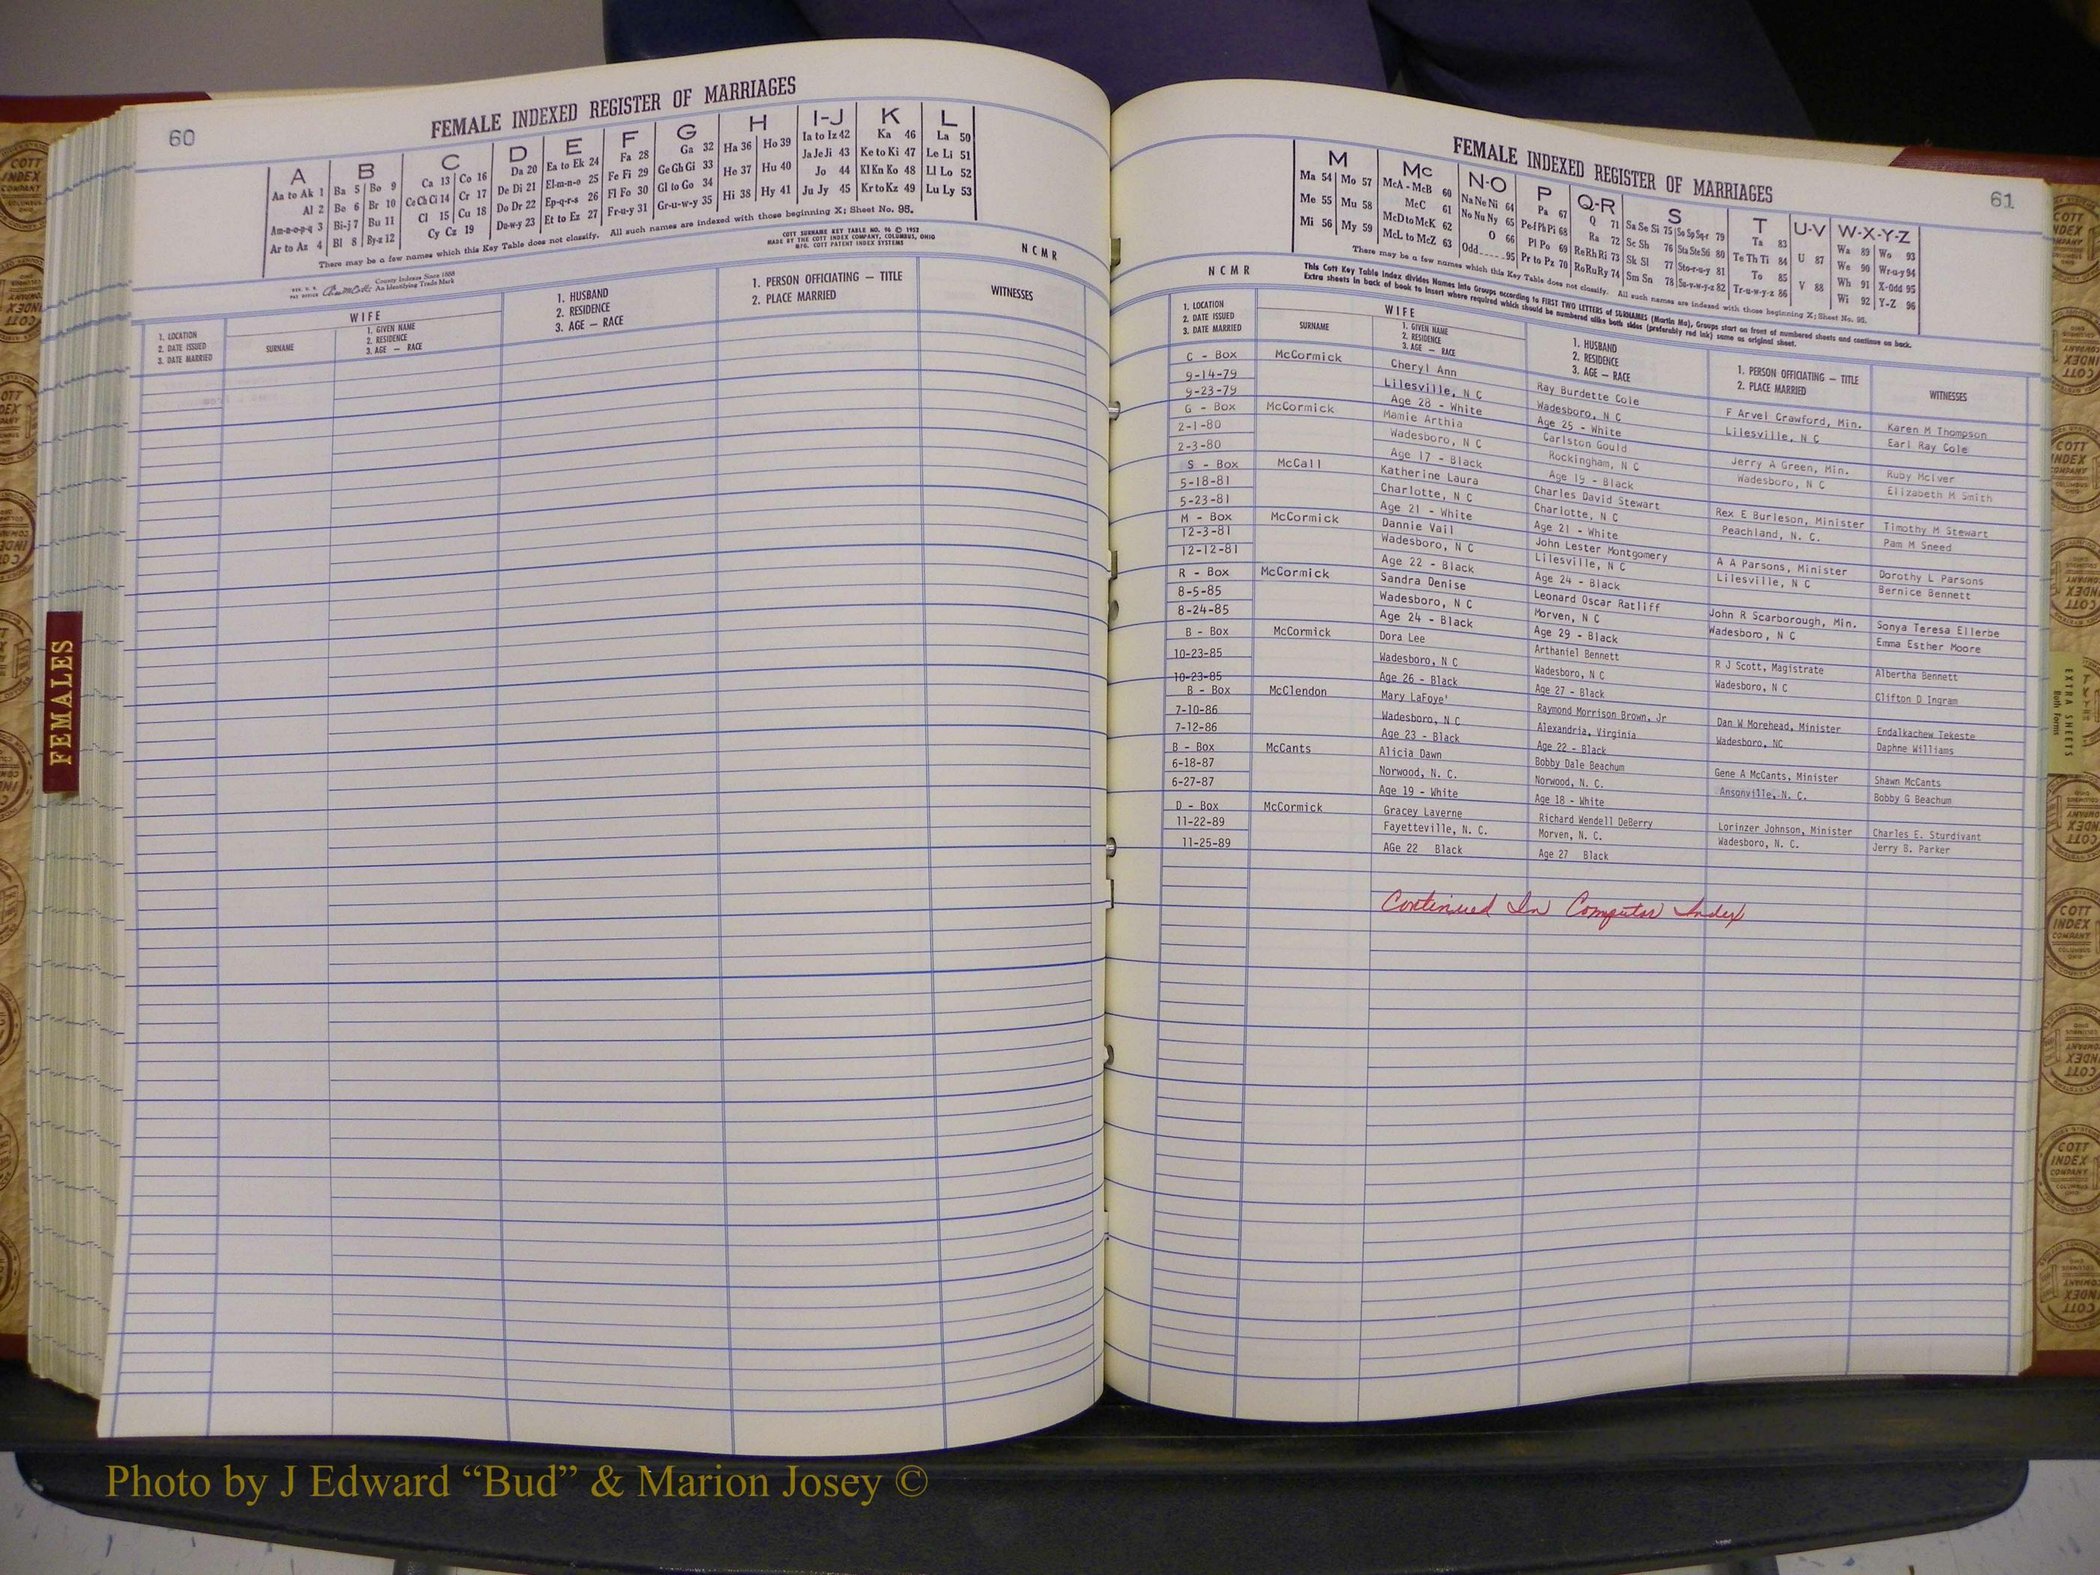 60
FEMALE INDEXED REGISTER OF MARRIAGES
A B C D E F G H I-J K L
Aa to Ak 1 Ba 5 Bo 9 Ca 13 Co 16 Da 20 Ea to Ek 24 Fa 28 Ga 32 Ha 36 Ho 39 Ia to Iz 42 Ka 46 La 50
Al 2 Be 6 Br 10 Ce Ch Ci 14 Cr 17 De Di 21 El-m-n-o 25 Fe Fi 29 Ge Gh Gi 33 He 37 Hu 40 Ja Je Ji 43 Ke to Ki 47 Le Li 51
Am-n-o-p-q 3 Bi-j 7 Bu 11 Cl 15 Cu 18 Do Dr 22 Ep-q-r-s 26 Fl Fo 30 Gl to Go 34 Hi 38 Hy 41 Jo 44 Kl Kn Ko 48 Ll Lo 52
Ar to Az 4 Bl 8 By-z 12 Cy Cz 19 Du-w-y 23 Et to Ez 27 Fr-u-y 31 Gr-u-w-y 35 Ju Jy 45 Kr to Kz 49 Lu Ly 53
There may be a few names which this Key Table does not classify. All such names are indexed with those beginning X; Sheet No. 95.
COTT SURNAME KEY TABLE NO. 96 © 1952
MADE BY THE COTT INDEX COMPANY, COLUMBUS, OHIO
MFG. COTT PATENT INDEX SYSTEMS
NCMR
County Indexes Since 1888
An Identifying Trade Mark
WIFE
1. LOCATION
2. DATE ISSUED
3. DATE MARRIED
SURNAME
1. GIVEN NAME
2. RESIDENCE
3. AGE — RACE
1. HUSBAND
2. RESIDENCE
3. AGE — RACE
1. PERSON OFFICIATING — TITLE
2. PLACE MARRIED
WITNESSES
FEMALES
FEMALE INDEXED REGISTER OF MARRIAGES
61
M Mc N-O P Q-R S T U-V W-X-Y-Z
Ma 54 Mo 57 McA - McB 60 Na Ne Ni 64 Pa 67 Q 71 Sa Se Si 75 So Sp Sq-r 79 Ta 83 U 87 Wa 89 Wo 93
Me 55 Mu 58 McC 61 No Nu Ny 65 Pe-f Ph Pi 68 Ra 72 Sc Sh 76 Sta Ste Sti 80 Te Th Ti 84 V 88 We 90 Wr-u-y 94
Mi 56 My 59 McD to McK 62 O 66 Pl Po 69 Re Rh Ri 73 Sk Sl 77 Sto-r-u-y 81 To 85 Wh 91 X-Odd 95
McL to McZ 63 Odd 95 Pr to Pz 70 Ro Ru Ry 74 Sm Sn 78 Su-v-w-y-z 82 Tr-u-w-y-z 86 Wi 92 Y-Z 96
There may be a few names which this Key Table does not classify. All such names are indexed with those beginning X; Sheet No. 95.
NCMR
This Cott Key Table Index divides Names into Groups according to FIRST TWO LETTERS of SURNAMES (Martin Ma), Groups start on front of numbered sheets and continue on back.
Extra sheets in back of book to insert where required which should be numbered alike both sides (preferably red ink) same as original sheet.
WIFE
1. LOCATION
2. DATE ISSUED
3. DATE MARRIED
SURNAME
1. GIVEN NAME
2. RESIDENCE
3. AGE — RACE
1. HUSBAND
2. RESIDENCE
3. AGE — RACE
1. PERSON OFFICIATING — TITLE
2. PLACE MARRIED
WITNESSES
C - Box McCormick Cheryl Ann Ray Burdette Cole F Arvel Crawford, Min. Karen M Thompson
9-14-79 Lilesville, N C Wadesboro, N C Lilesville, N C Earl Ray Cole
9-23-79 Age 28 - White Age 25 - White
G - Box McCormick Mamie Arthia Carlston Gould Jerry A Green, Min. Ruby McIver
2-1-80 Wadesboro, N C Rockingham, N C Wadesboro, N C Elizabeth M Smith
2-3-80 Age 17 - Black Age 19 - Black
S - Box McCall Katherine Laura Charles David Stewart Rex E Burleson, Minister Timothy M Stewart
5-18-81 Charlotte, N C Charlotte, N C Peachland, N. C. Pam M Sneed
5-23-81 Age 21 - White Age 21 - White
M - Box McCormick Dannie Vail John Lester Montgomery A A Parsons, Minister Dorothy L Parsons
12-3-81 Wadesboro, N C Lilesville, N C Lilesville, N C Bernice Bennett
12-12-81 Age 22 - Black Age 24 - Black
R - Box McCormick Sandra Denise Leonard Oscar Ratliff John R Scarborough, Min. Sonya Teresa Ellerbe
8-5-85 Wadesboro, N C Morven, N C Wadesboro, N C Emma Esther Moore
8-24-85 Age 24 - Black Age 29 - Black
B - Box McCormick Dora Lee Arthaniel Bennett R J Scott, Magistrate Albertha Bennett
10-23-85 Wadesboro, N C Wadesboro, N C Wadesboro, N C Clifton D Ingram
10-23-85 Age 26 - Black Age 27 - Black
B - Box McClendon Mary LaFoye' Raymond Morrison Brown, Jr Dan W Morehead, Minister Endalkachew Tekeste
7-10-86 Wadesboro, N C Alexandria, Virginia Wadesboro, NC Daphne Williams
7-12-86 Age 23 - Black Age 22 - Black
B - Box McCants Alicia Dawn Bobby Dale Beachum Gene A McCants, Minister Shawn McCants
6-18-87 Norwood, N. C. Norwood, N. C. Ansonville, N. C. Bobby G Beachum
6-27-87 Age 19 - White Age 18 - White
D - Box McCormick Gracey Laverne Richard Wendell DeBerry Lorinzer Johnson, Minister Charles E. Sturdivant
11-22-89 Fayetteville, N. C. Morven, N. C. Wadesboro, N. C. Jerry B. Parker
11-25-89 AGe 22 Black Age 27 Black
Continued In Computer Index
EXTRA SHEETS
Both Forms
COTT INDEX COMPANY COLUMBUS OHIO
Photo by J Edward “Bud” & Marion Josey ©